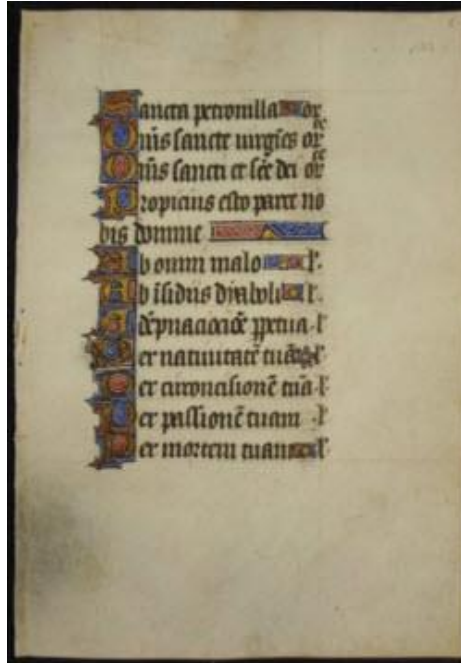 Sancta petronilla or
Om̄s sancte uirgīes or
Om̄s sancti et sc̄e dei or
Propicius esto parce no
bis domine
Ab omni malo l'.
Ab īsidiis dyaboli l'.
A dāpnacioē ꝑpetua l'
Per natiuitatē tuā l'
Per circoncisionē tuā l'
Per passionē tuam l'
Per mortem tuam l'